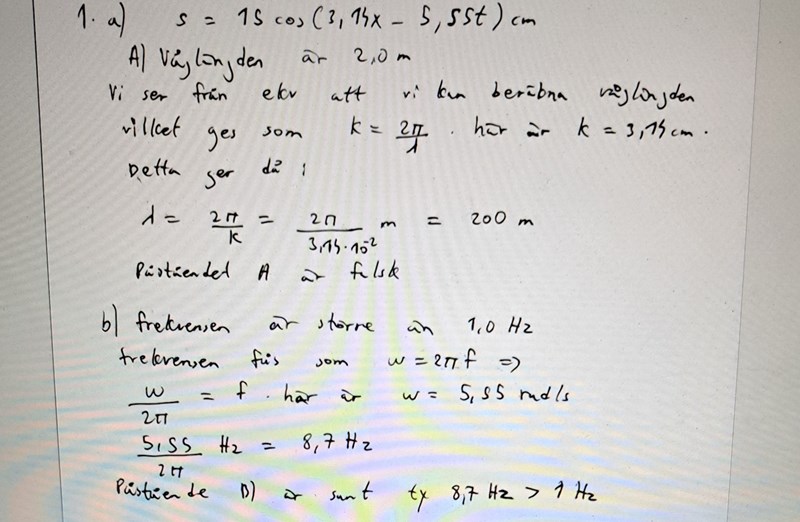 1. a) s = 15 cos (3,14x - 5,55t) cm
A) Våglängden är 2,0 m
Vi ser från ekv att vi kan beräkna våglängden
vilket ges som k = 2π/λ . här är k = 3,14 cm.
Detta ger då :
λ = 2π/k = 2π/3,14·10⁻² m = 200 m
Påståendet A är falsk
b) frekvensen är större än 1,0 Hz
frekvensen fås som w = 2πf =>
w/2π = f . här är w = 5,55 rad/s
5,55/2π Hz = 8,7 Hz
Påstående B) är sant ty 8,7 Hz > 1 Hz